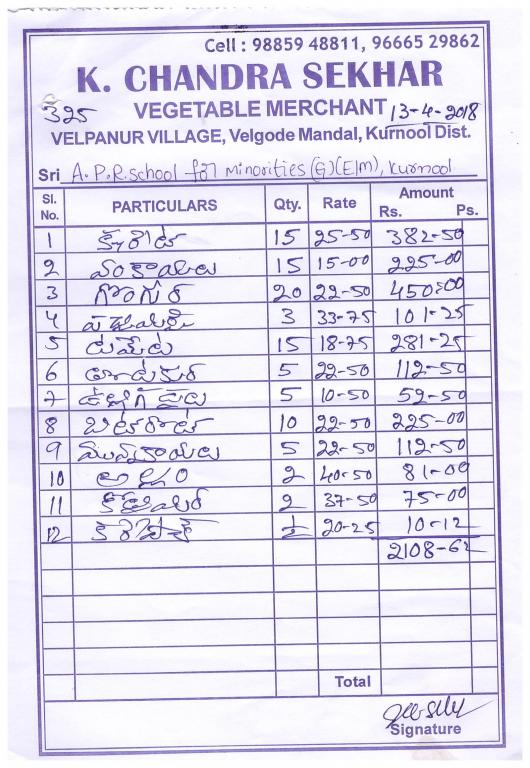 Cell : 98859 48811, 96665 29862
K. CHANDRA SEKHAR
325 VEGETABLE MERCHANT 13-4-2018
VELPANUR VILLAGE, Velgode Mandal, Kurnool Dist.
Sri A.P.R.school for minorities (G)(E/m), Kurnool
Sl. No. PARTICULARS Qty. Rate Amount Rs. Ps.
1 క్యారెట్ 15 25-50 382-50
2 వంకాయలు 15 15-00 225-00
3 గోంగుర 20 22-50 450=00
4 3 33-75 101-25
5 టమోట 15 18-75 281-25
6 5 22-50 112-50
7 5 10-50 52-50
8 బీట్‌రూట్ 10 22-50 225-00
9 మునక్కాయలు 5 22-50 112-50
10 అల్లం 2 40-50 81-00
11 2 37-50 75-00
12 ½ 20-25 10-12
2108-62
Total
Signature